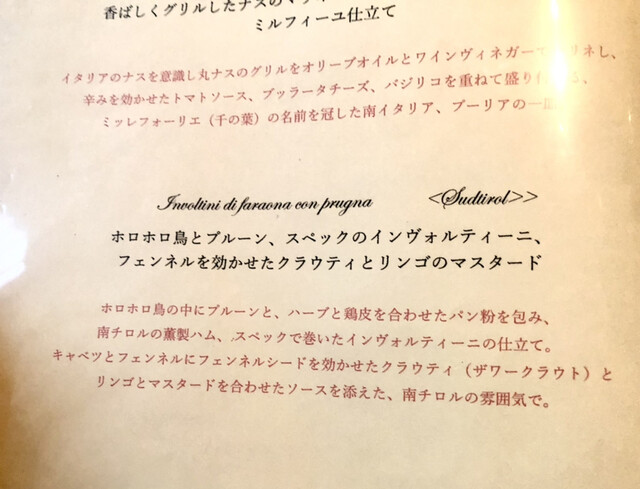 香ばしくグリルしたナスの
ミルフィーユ仕立て
イタリアのナスを意識し丸ナスのグリルをオリーブオイルとワインヴィネガーでマリネし、
辛みを効かせたトマトソース、ブッラータチーズ、バジリコを重ねて盛り
ミッレフォーリエ（千の葉）の名前を冠した南イタリア、プーリアの一
Involtini di faraona con prugna <Sudtirol>>
ホロホロ鳥とプルーン、スペックのインヴォルティーニ、
フェンネルを効かせたクラウティとリンゴのマスタード
ホロホロ鳥の中にプルーンと、ハーブと鶏皮を合わせたパン粉を包み、
南チロルの薫製ハム、スペックで巻いたインヴォルティーニの仕立て。
キャベツとフェンネルにフェンネルシードを効かせたクラウティ（ザワークラウト）と
リンゴとマスタードを合わせたソースを添えた、南チロルの雰囲気で。